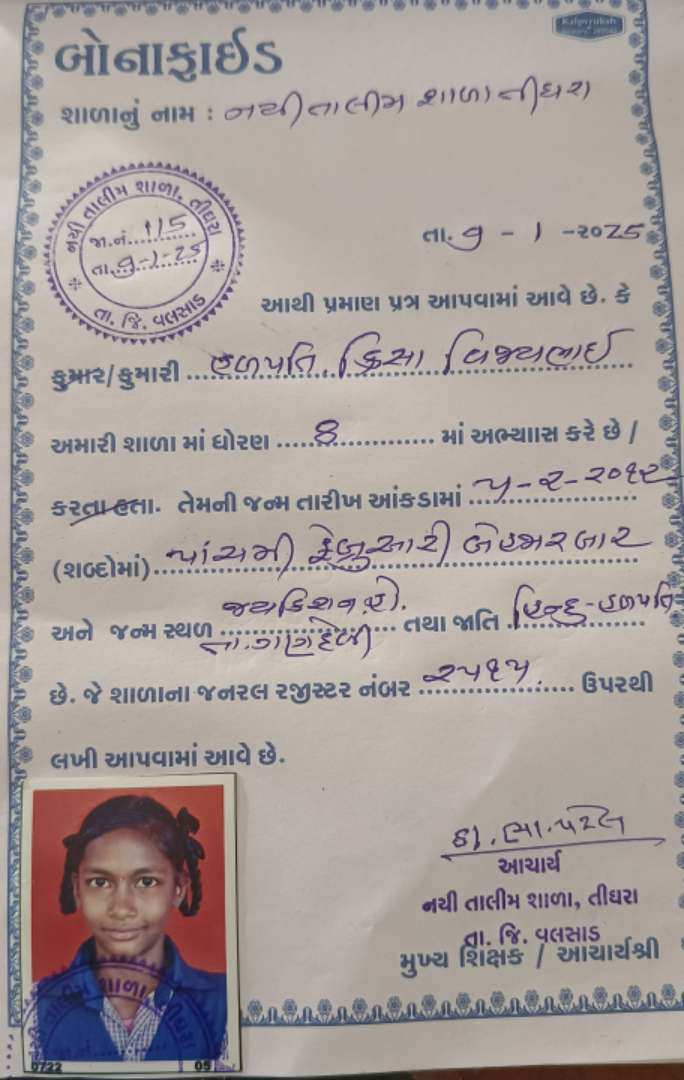 Kalpvruksh
બોનાફાઈડ
શાળાનું નામ : નયી તાલીમ શાળા તીઘરા
નયી તાલીમ શાળા. તીઘરા
જા.નં. 115
તા. 9-1-25
તા. જિ. વલસાડ
તા. 9 - 1 -૨૦25
આથી પ્રમાણ પત્ર આપવામાં આવે છે. કે
કુમાર/કુમારી હળપતિ ક્રિસા વિજયભાઈ
અમારી શાળા માં ધોરણ 8 માં અભ્યાાસ કરે છે /
કરતા હતા. તેમની જન્મ તારીખ આંકડામાં ૫-૨-૨૦૧૨
(શબ્દોમાં) પાંચમી ફેબ્રુઆરી બેહજાર બાર
અને જન્મ સ્થળ જયકિશન તા. ગણદેવી તથા જાતિ હિન્દુ-હળપતિ
છે. જે શાળાના જનરલ રજીસ્ટર નંબર ૨૫૧૫ ઉપરથી
લખી આપવામાં આવે છે.
ભા. પટેલ
આચાર્ય
નયી તાલીમ શાળા, તીઘરા
તા. જિ. વલસાડ
મુખ્ય શિક્ષક / આચાર્યશ્રી
0722
05